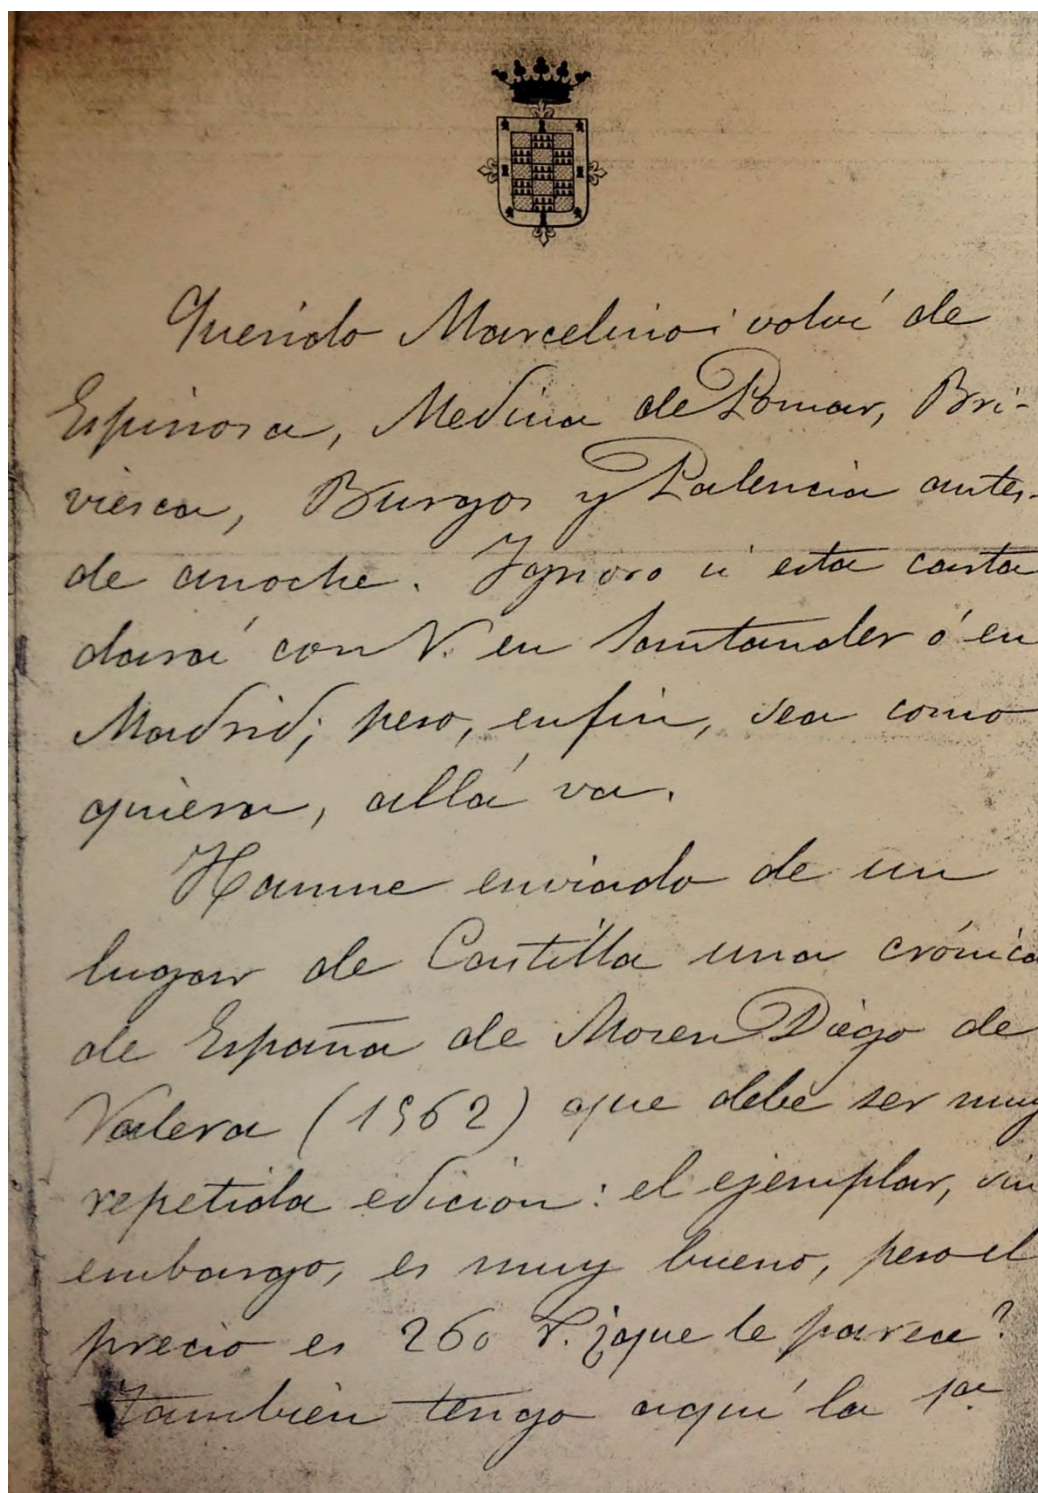 Querido Marcelino: volví de
Espinosa, Medina de Pomar, Bri-
viesca, Burgos y Palencia antes
de anoche. Ignoro si esta carta
dará con V. en Santander ó en
Madrid; pero, enfin, sea como
quiera, allá va.
Hanme enviado de un
lugar de Castilla una crónica
de España de Mosen Diego de
Valera (1562) que debe ser muy
repetida edicion: el ejemplar, sin
embargo, es muy bueno, pero el
precio es 260 r. ¿que le parece?
Tambien tengo aquí la 1ª